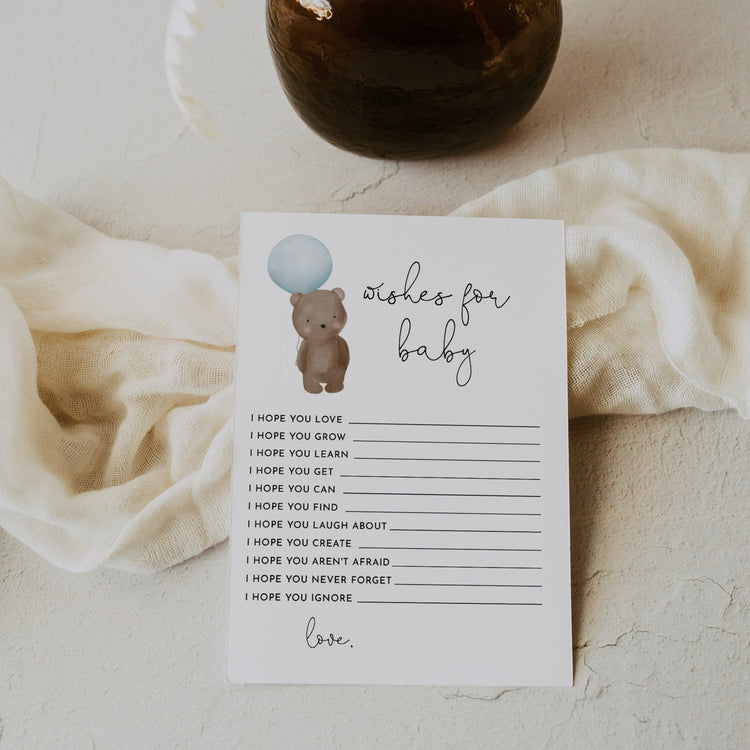 wishes for
baby
I HOPE YOU LOVE
I HOPE YOU GROW
I HOPE YOU LEARN
I HOPE YOU GET
I HOPE YOU CAN
I HOPE YOU FIND
I HOPE YOU LAUGH ABOUT
I HOPE YOU CREATE
I HOPE YOU AREN'T AFRAID
I HOPE YOU NEVER FORGET
I HOPE YOU IGNORE
love,